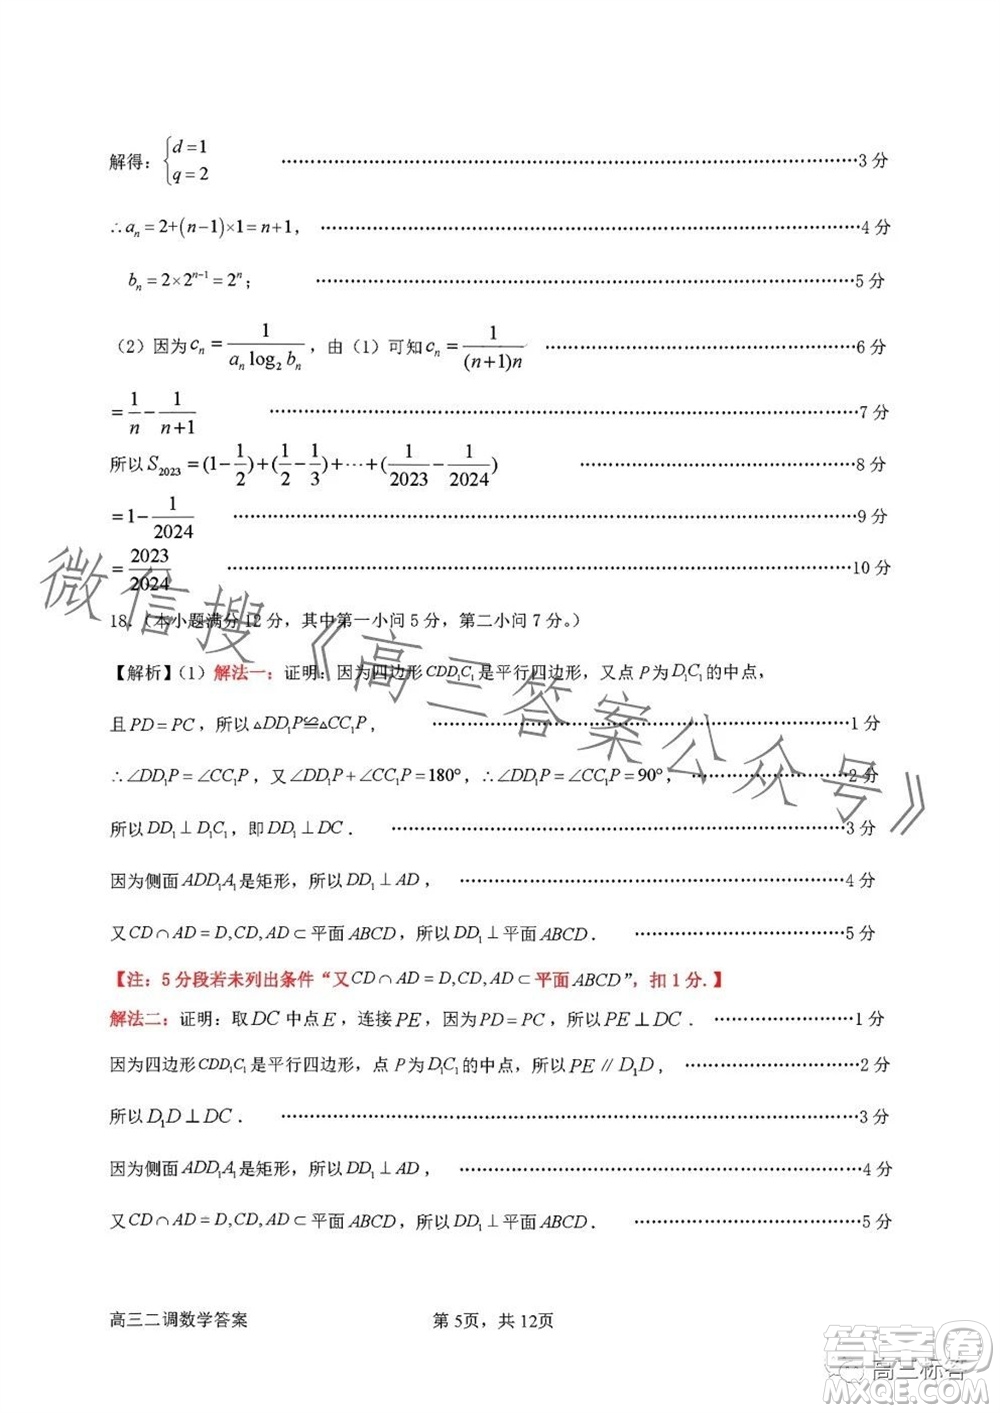 解得：{d=1 q=2 ……3分
∴a_n=2+(n−1)×1=n+1， ……4分
b_n=2×2^{n−1}=2^n； ……5分
（2）因为c_n=1/(a_n log_2 b_n)，由（1）可知c_n=1/((n+1)n) ……6分
=1/n−1/(n+1) ……7分
所以S_2023=(1−1/2)+(1/2−1/3)+⋯+(1/2023−1/2024) ……8分
=1−1/2024 ……9分
=2023/2024 ……10分
18.（本小题满分12分，其中第一小问5分，第二小问7分。）
【解析】（1）解法一：证明：因为四边形CDD₁C₁是平行四边形，又点P为D₁C₁的中点，
且PD=PC，所以△DD₁P≌△CC₁P， ……1分
∴∠DD₁P=∠CC₁P，又∠DD₁P+∠CC₁P=180°，∴∠DD₁P=∠CC₁P=90°， ……2分
所以DD₁⊥D₁C₁，即DD₁⊥DC． ……3分
因为侧面ADD₁A₁是矩形，所以DD₁⊥AD， ……4分
又CD∩AD=D,CD,AD⊂平面ABCD，所以DD₁⊥平面ABCD． ……5分
【注：5分段若未列出条件“又CD∩AD=D,CD,AD⊂平面ABCD”，扣1分.】
解法二：证明：取DC中点E，连接PE，因为PD=PC，所以PE⊥DC． ……1分
因为四边形CDD₁C₁是平行四边形，点P为D₁C₁的中点，所以PE∥D₁D， ……2分
所以D₁D⊥DC． ……3分
因为侧面ADD₁A₁是矩形，所以DD₁⊥AD， ……4分
又CD∩AD=D,CD,AD⊂平面ABCD，所以DD₁⊥平面ABCD． ……5分
高三二调数学答案 第5页，共12页
微信搜《高三答案公众号》
高三标答
答案圈
MXQE.COM